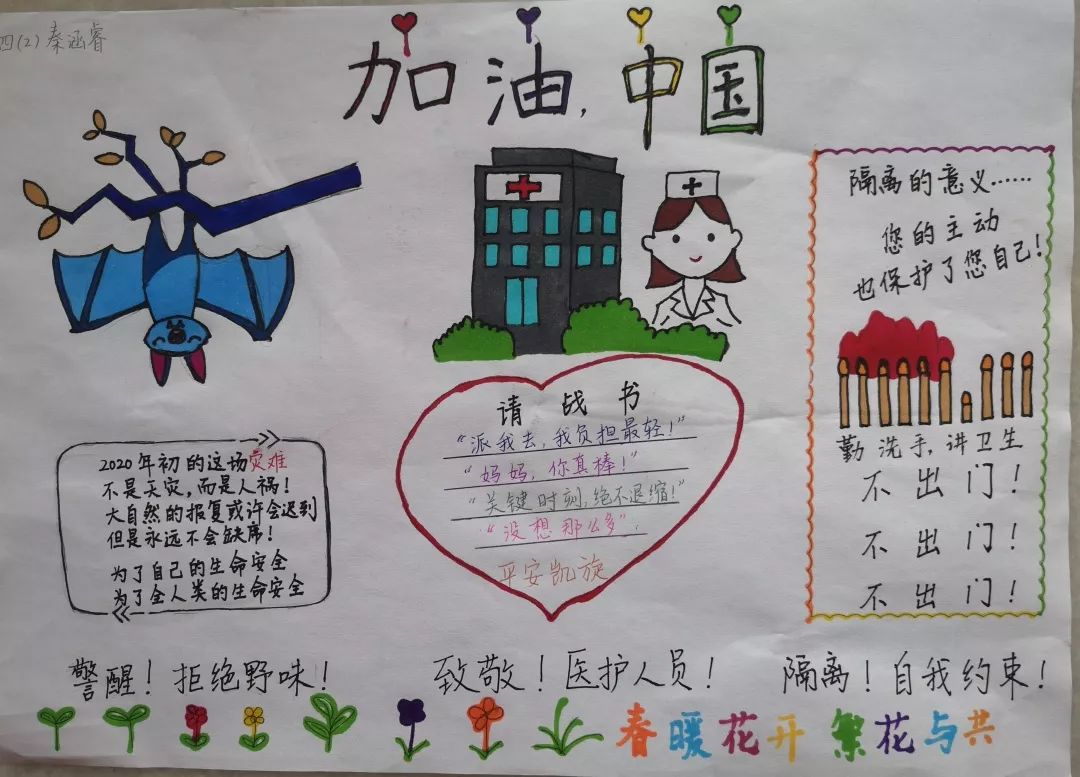 四(2)秦涵睿
加油,中国
2020年初的这场灾难
不是天灾,而是人祸!
大自然的报复或许会迟到
但是永远不会缺席!
为了自己的生命安全
为了全人类的生命安全
请战书
“派我去,我负担最轻!”
“妈妈,你真棒!”
“关键时刻,绝不退缩!”
“没想那么多”
平安凯旋
隔离的意义……
您的主动
也保护了您自己!
勤洗手,讲卫生
不出门!
不出门!
不出门!
警醒!拒绝野味!
致敬!医护人员!
隔离!自我约束!
春暖花开 繁花与共